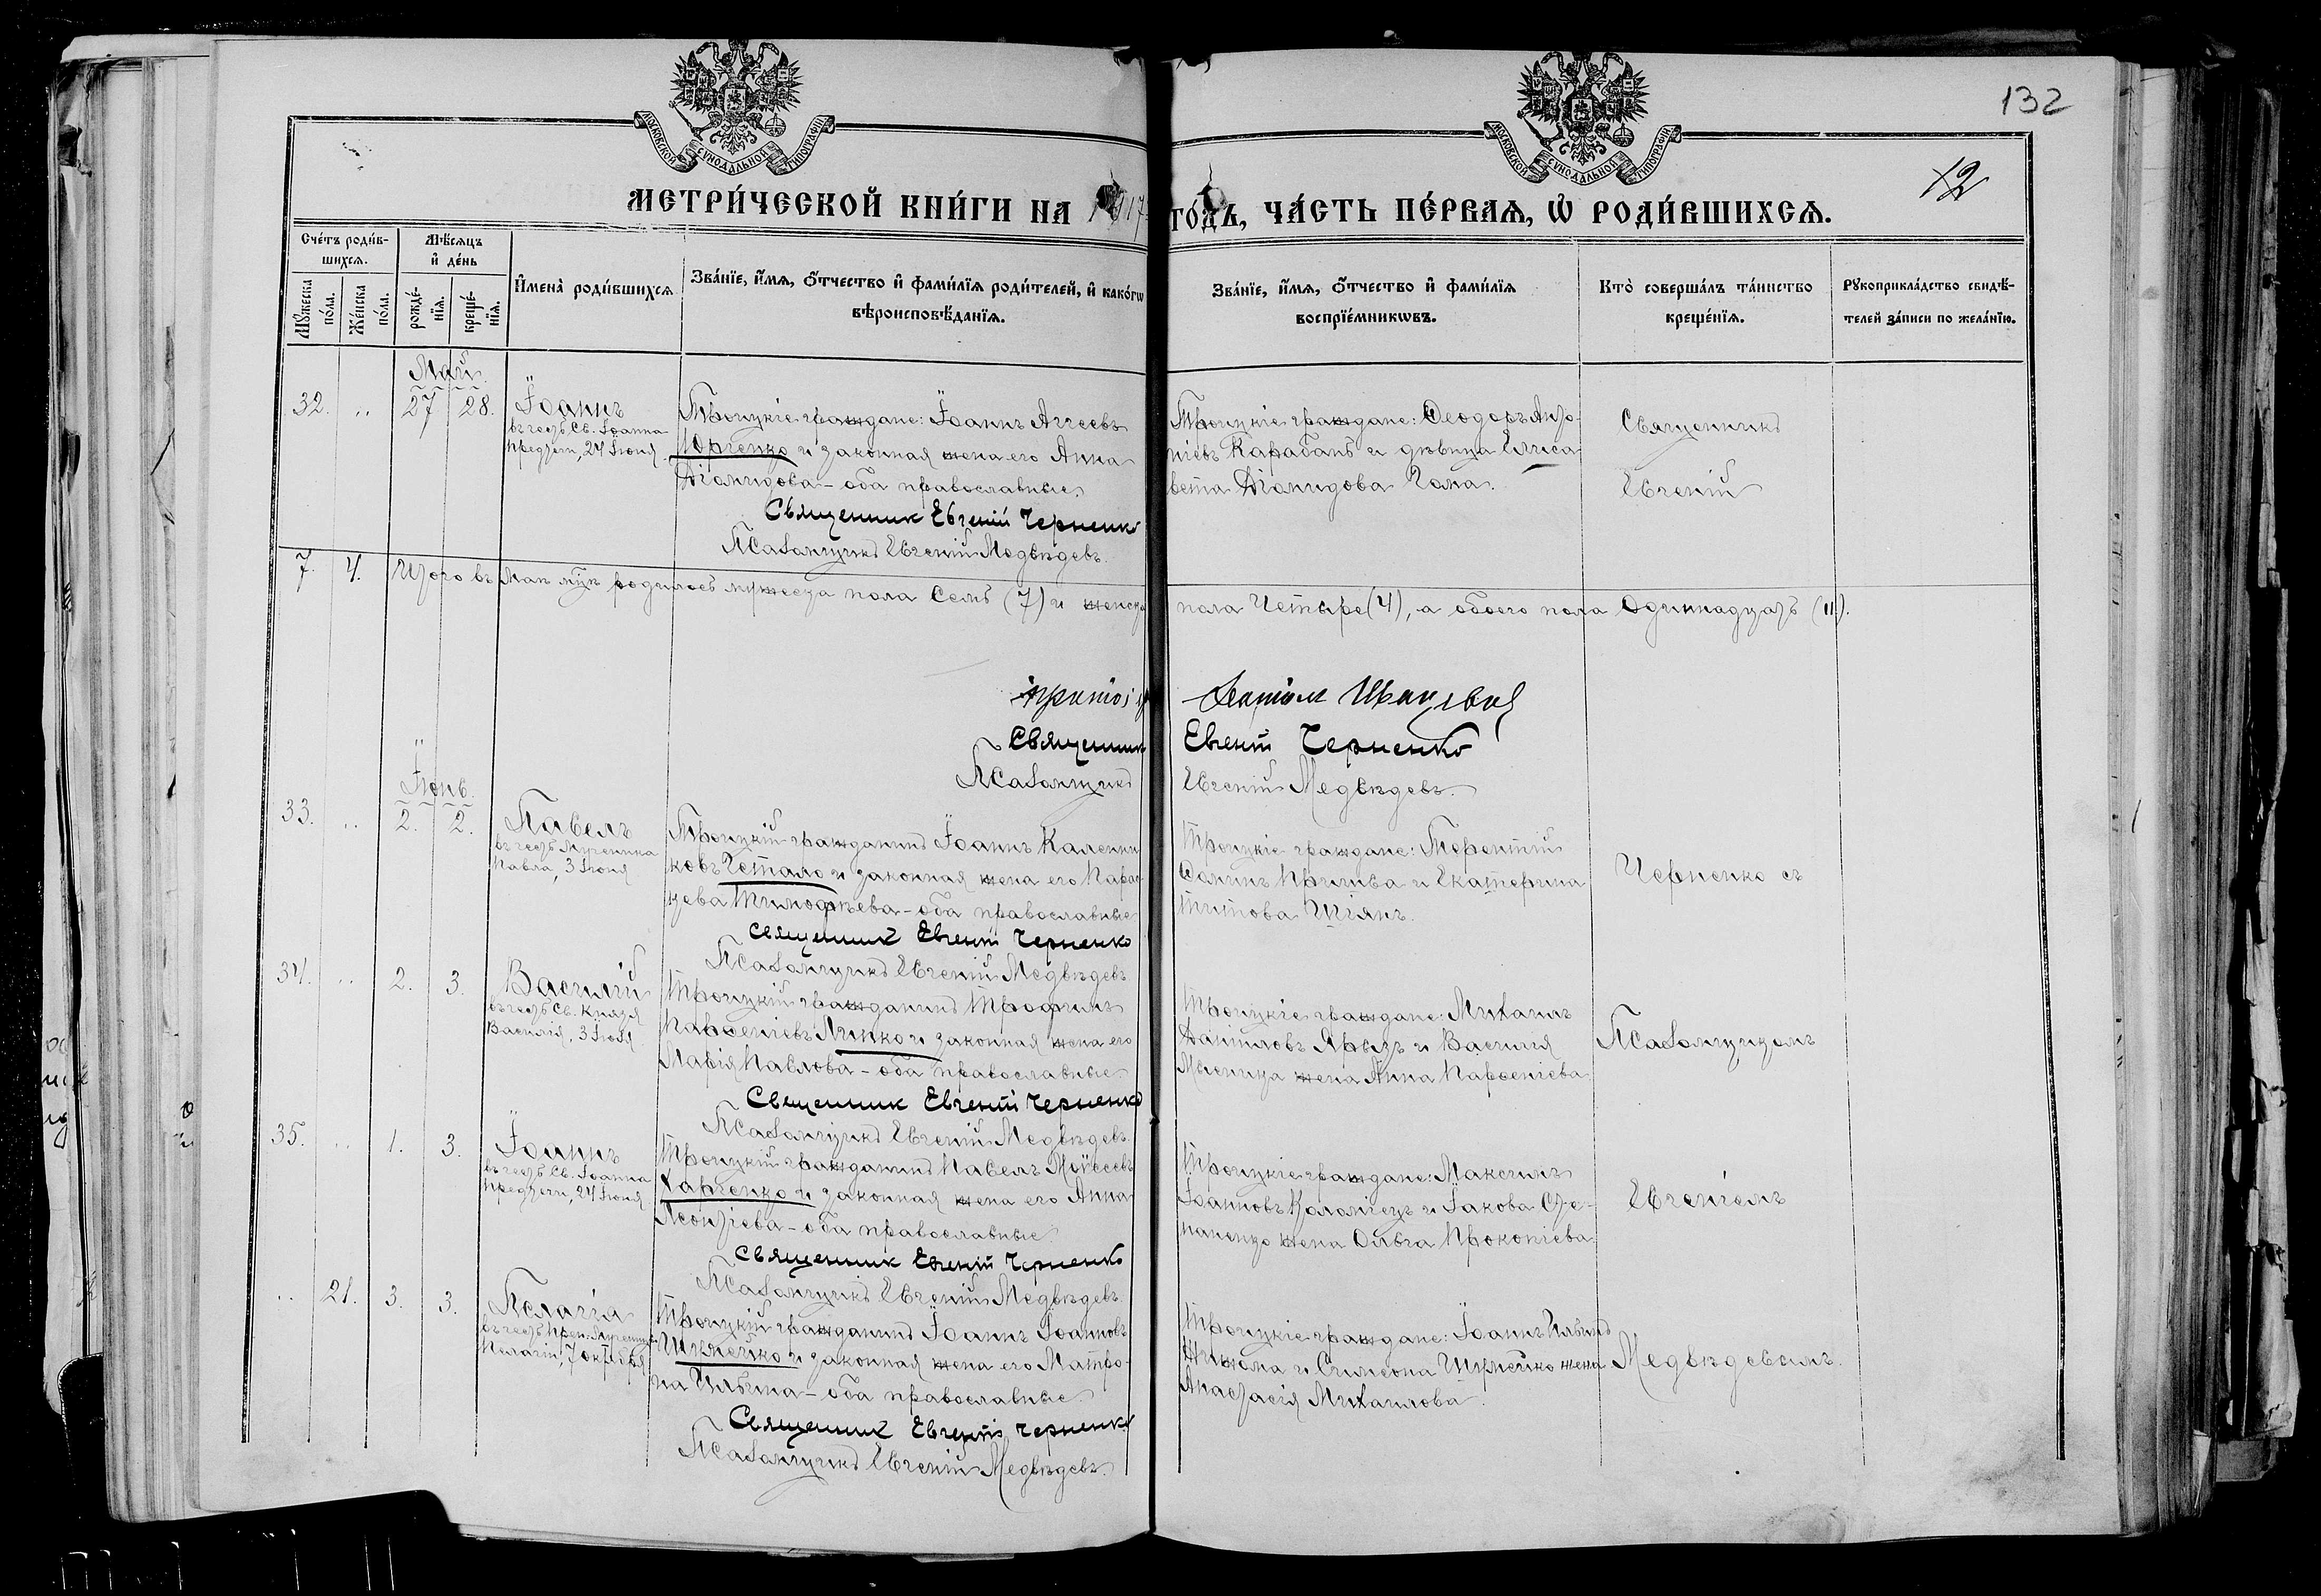 132
12
МОСКОВСКОЙ СѴНОДАЛЬНОЙ ТИПОГРАФІИ
МОСКОВСКОЙ СѴНОДАЛЬНОЙ ТИПОГРАФІИ
МЕТРИ́ЧЕСКОЙ КНИ́ГИ НА 1917
ГО́ДЪ, ЧА́СТЬ ПЕ́РВАѦ, Ѡ҆ РОДИ́ВШИХСѦ.
Сче́тъ роди́в-
шихсѧ.
Мꙋ́жеска по́ла.
Же́нска по́ла.
Мѣ́сѧцъ
и҆ де́нь
рожде́-
нїѧ.
креще́-
нїѧ.
И҆мена̀ роди́вшихсѧ
Зва́нїе, и҆́мѧ, ѻ҆́тчество и҆ фами́лїѧ роди́телей, и҆ како́гѡ
вѣроисповѣ́данїѧ.
Зва́нїе, и҆́мѧ, ѻ҆́тчество и҆ фами́лїѧ
воспрїе́мникѡвъ.
Кто̀ соверша́лъ та́инство
креще́нїѧ.
Рꙋкоприкла́дство свидѣ́-
телей за́писи по жела́нїю.
Май.
32. „ 27 28. Іоаннъ
въ честь Св. Іоанна
Предтечи, 24 Іюня
Троицкіе граждане: Іоаннъ Аггеевъ
Юрченко и законная жена его Анна
Діомидова – оба православные.
Священник Евгений Черненко
Псаломщикъ Евгеній Медвѣдевъ.
Троицкіе граждане: Ѳеодоръ Анто-
ніевъ Карабань и дѣвица Елиса
вета Діомидова Гома.
Священникъ
Евгеній
7. 4. Итого въ Маѣ мцѣ родилось мужеска пола Семь (7) и женска
пола Четыре (4), а обоего пола Одиннадцать (11).
Священник Евгений Черненко
Псаломщикъ Евгеній Медвѣдевъ.
Іюнь.
33. „ 2. 2. Павелъ
въ честь Мученика
Павла, 3 Іюня
Троицкій гражданинъ Іоаннъ Каленни
ковъ Четало и законная жена его Парас
кева Тимоѳеева – оба православные
Священник Евгений Черненко
Псаломщикъ Евгеній Медвѣдевъ
Троицкіе граждане: Терентій
Ѳоминъ Причива и Екатерина
Титова Шіянъ.
Черненко съ
34. „ 2. 3. Василій
въ честь Св. Князя
Василія, 3 Іюля
Троицкій гражданинъ Трофимъ
Парѳеніевъ Линко и законная жена его
Марія Павлова – оба православные.
Священник Евгений Черненко
Псаломщикъ Евгеній Медвѣдевъ.
Троицкіе граждане: Михаилъ
Даніиловъ Ярызъ и Василія
Мысника жена Анна Парѳеніева
Псаломщикомъ
35. „ 1. 3. Іоаннъ
въ честь Св. Іоанна
Предтечи, 24 Іюня
Троицкій гражданинъ Павелъ Моисеевъ
Харченко и законная жена его Анна
Леонтіева – оба православные.
Священник Евгений Черненко
Псаломщикъ Евгеній Медвѣдевъ.
Троицкіе граждане: Максимъ
Іоанновъ Коломіецъ и Іакова Сте-
паненко жена Ольга Прокопіева
Евгеніемъ
„ 21. 3. 3. Пелагія
въ честь Преп. Мученицы
Пелагіи, 7 октября
Троицкій гражданинъ Іоаннъ Іоанновъ
Шумейко и законная жена его Матро-
на Ильина – оба православные.
Священник Евгений Черненко
Псаломщикъ Евгеній Медвѣдевъ.
Троицкіе граждане: Іоаннъ Ильинъ
и Симеона Шумейко жена
Анастасія Михаилова.
Медвѣдевымъ.